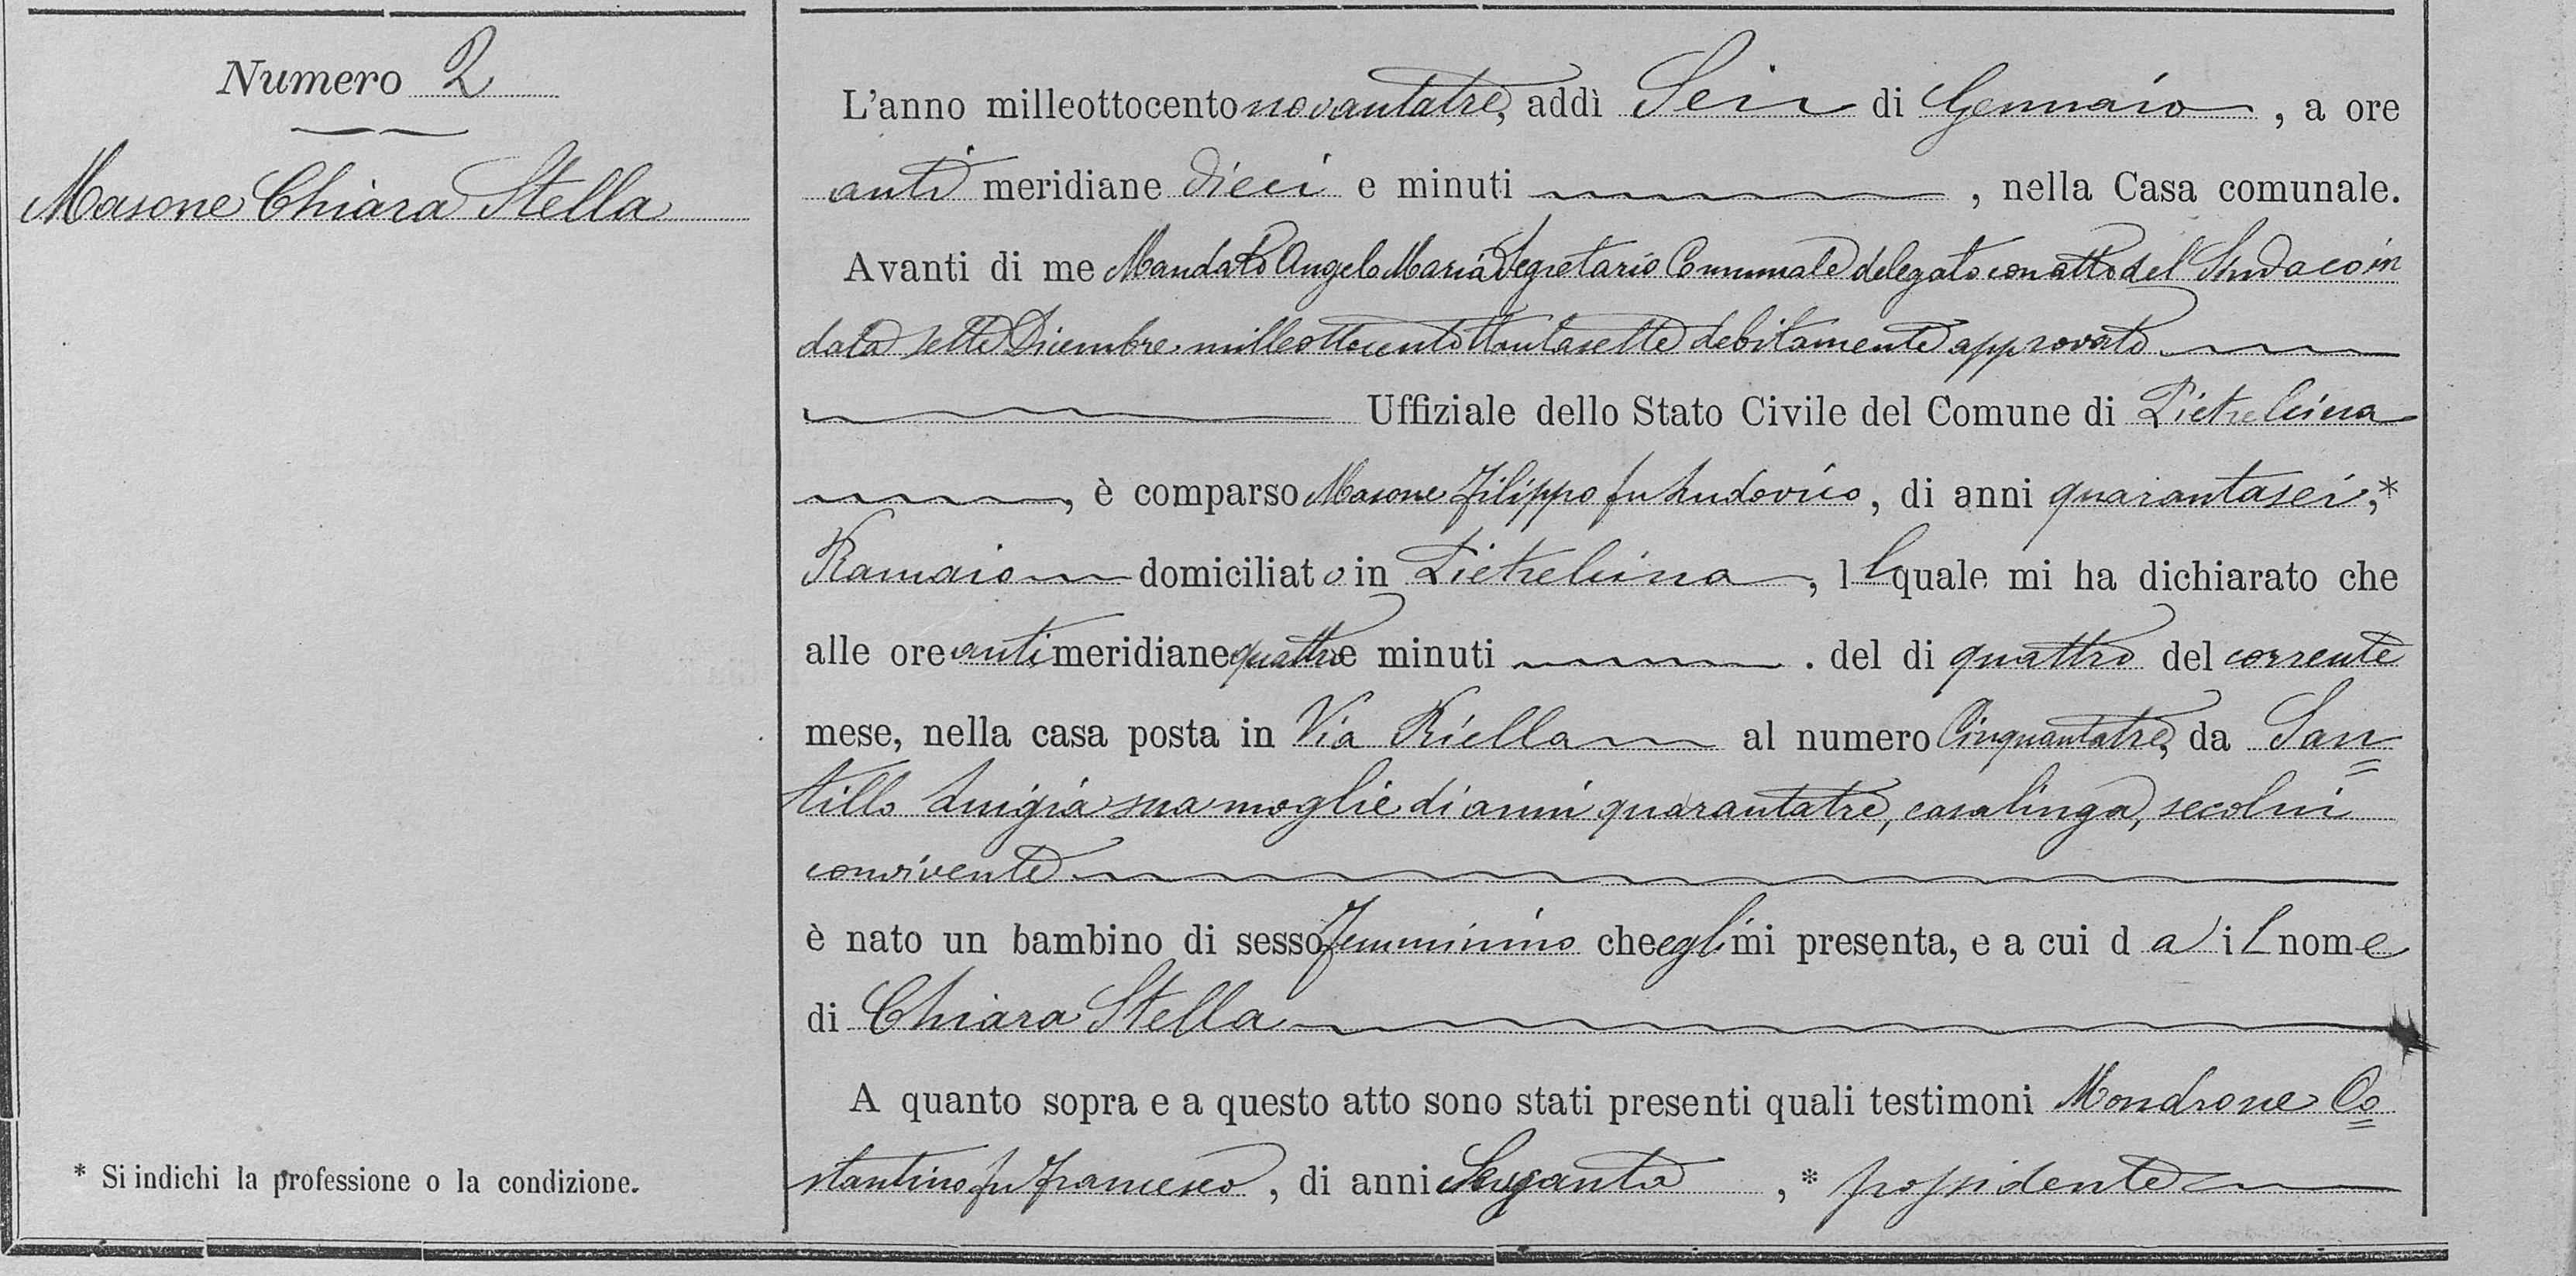 Numero 2
Masone Chiara Stella
* Si indichi la professione o la condizione.
L'anno milleottocento novantatre, addì Sei di Gennaio, a ore
anti meridiane dieci e minuti , nella Casa comunale.
Avanti di me Mandato Angelo Maria Segretario Comunale delegato con atto del Sindaco in
data sette Dicembre milleottocentottantasette debitamente approvato
Uffiziale dello Stato Civile del Comune di Pietrelcina
, è comparso Masone Filippo fu Ludovico, di anni quarantasei,*
Ramaio domiciliato in Pietrelcina, l l quale mi ha dichiarato che
alle ore anti meridiane quattro e minuti . del dì quattro del corrente
mese, nella casa posta in Via Riella al numero Cinquantatre, da San=
tillo Luigia sua moglie di anni quarantatre, casalinga, secolui
convivente
è nato un bambino di sesso femminino che egli mi presenta, e a cui d a il nome
di Chiara Stella
A quanto sopra e a questo atto sono stati presenti quali testimoni Mondrone Co=
stantino fu Francesco, di anni , * possidente